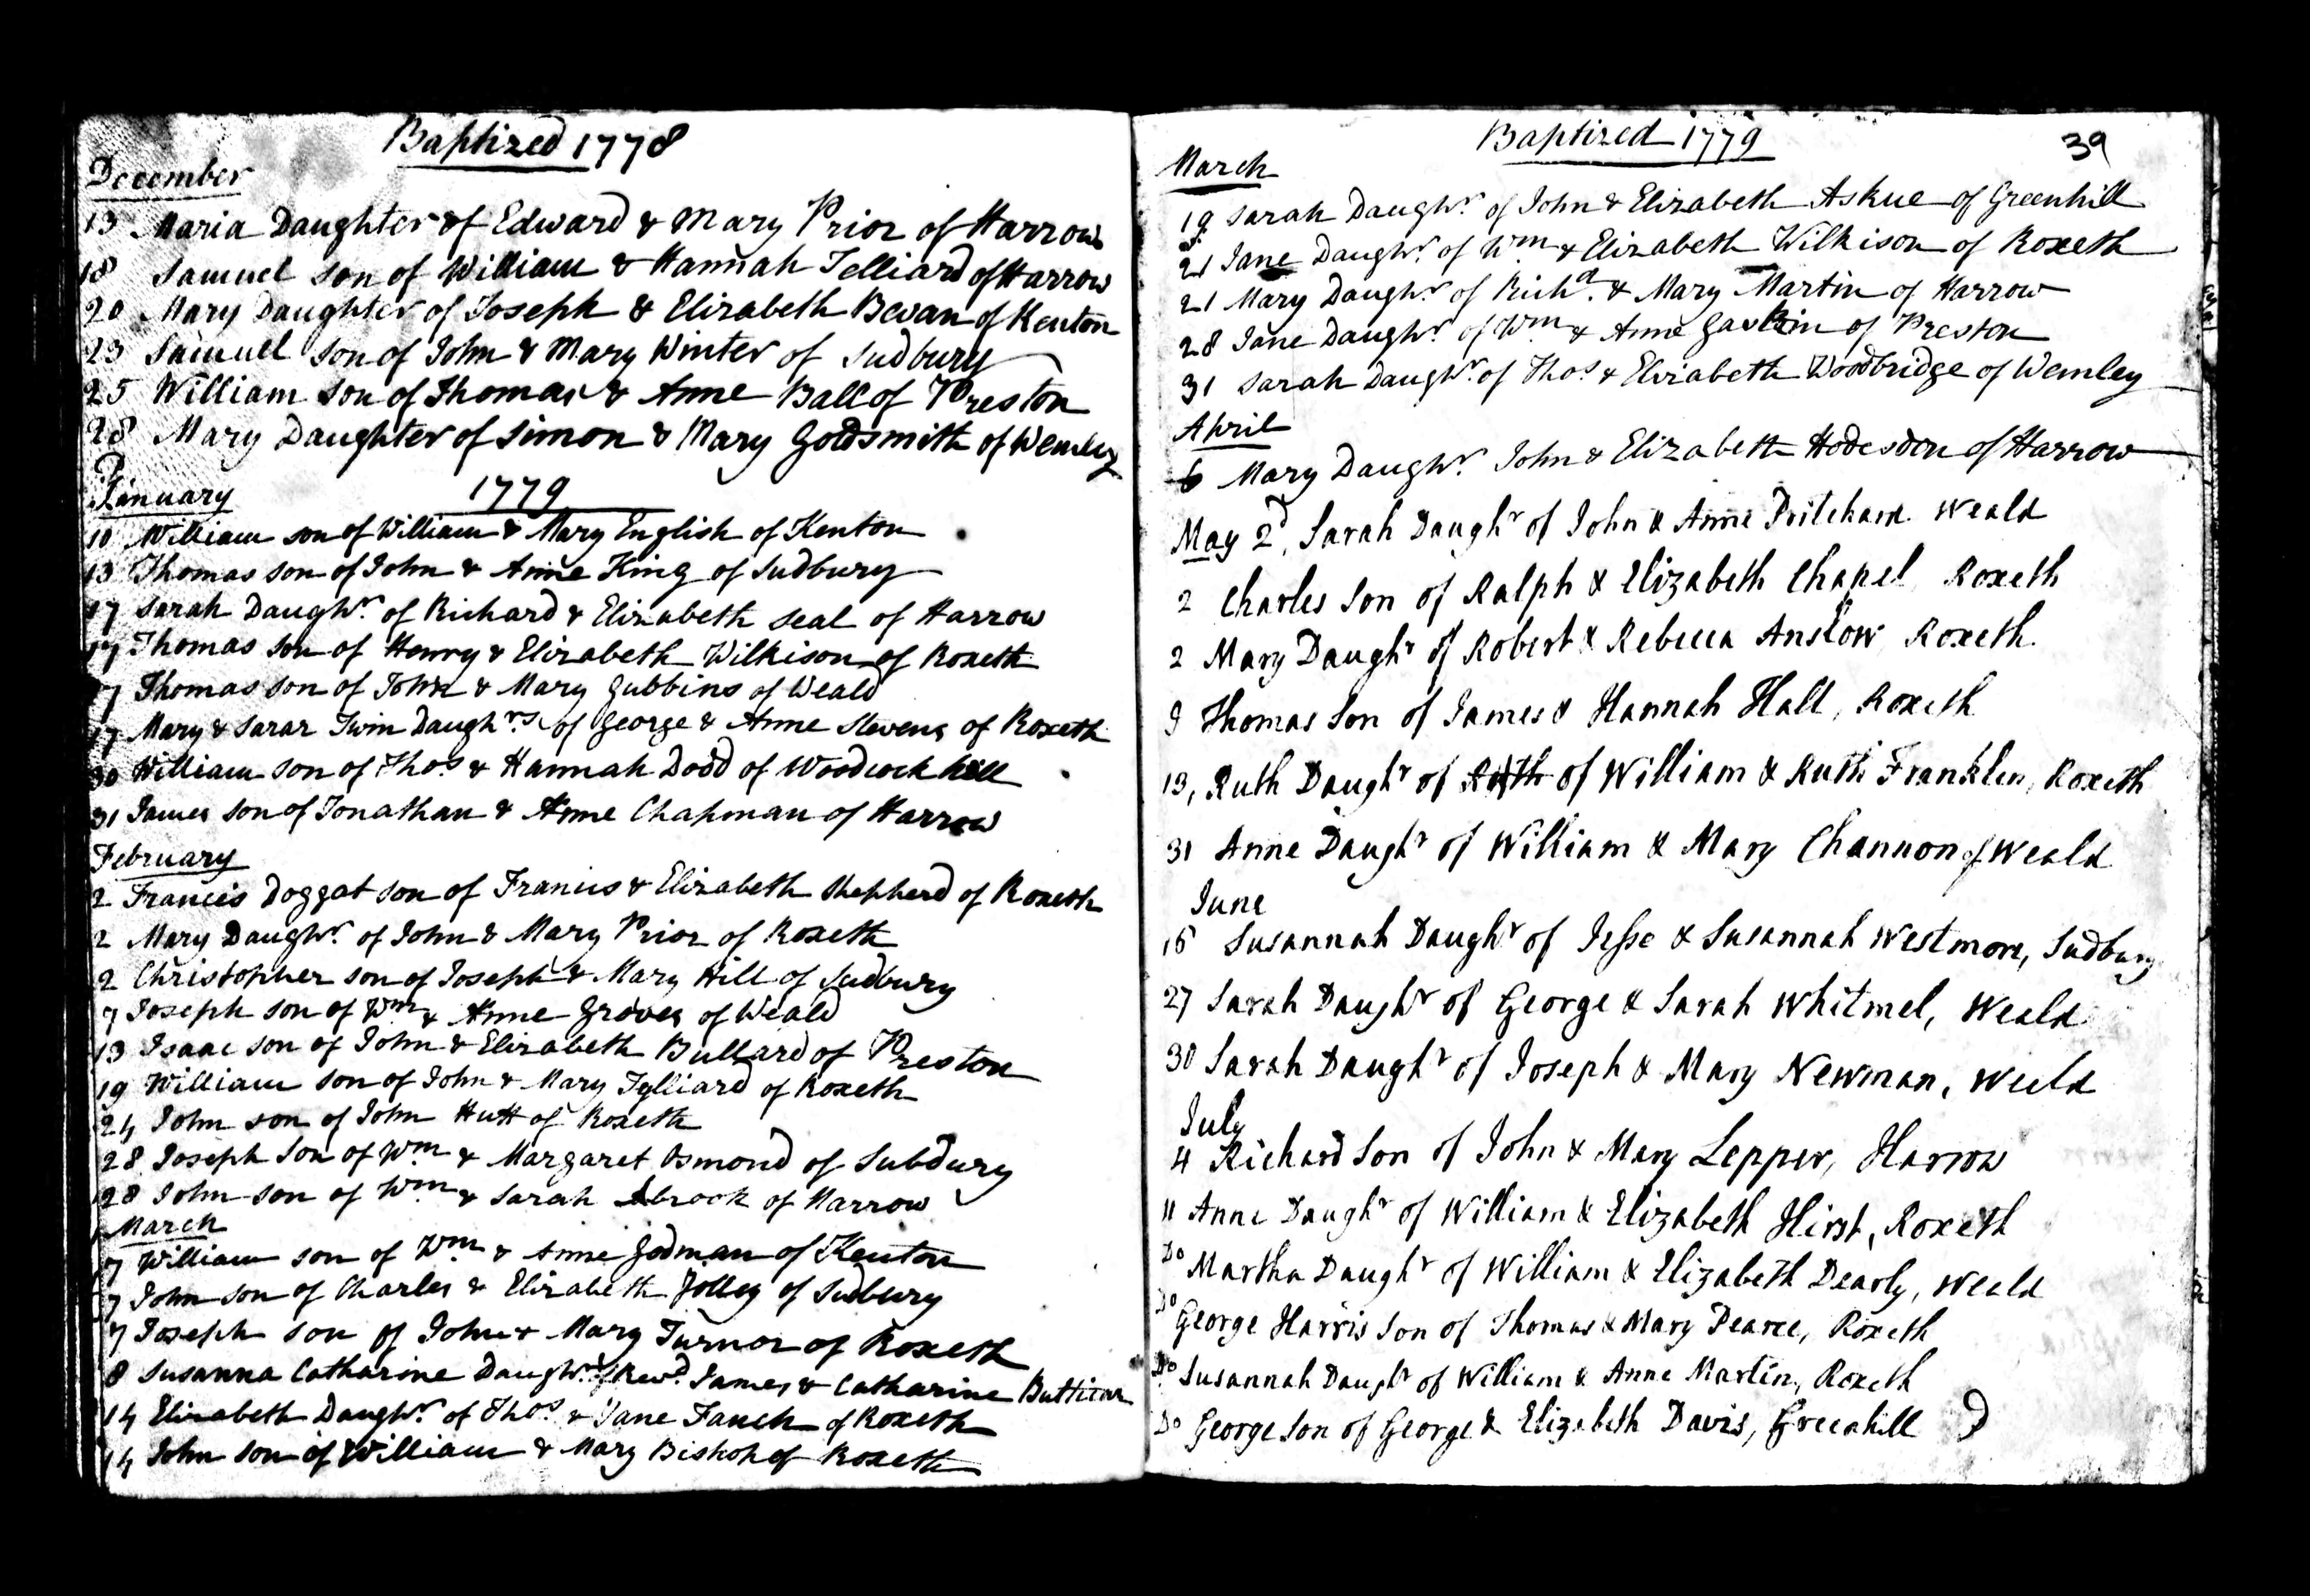 Baptized 1778
December
13 Maria Daughter of Edward & Mary Prior of Harrow
18 Samuel son of William & Hannah Telliard of Harrow
20 Mary Daughter of Joseph & Elizabeth Bevan of Kenton
23 Samuel son of John & Mary Winter of Sudbury
25 William son of Thomas & Anne Ball of Preston
28 Mary Daughter of Simon & Mary Goldsmith of Wemley
January 1779
10 William son of William & Mary English of Kenton
13 Thomas son of John & Anne King of Sudbury
17 Sarah Daughr. of Richard & Elizabeth Seal of Harrow
17 Thomas son of Henry & Elizabeth Wilkison of Roxeth
17 Thomas son of John & Mary Gubbins of Weald
17 Mary & Sarar Twin Daughrs. of George & Anne Stevens of Roxeth
30 William son of Thos. & Hannah Dodd of Woodcock hill
31 James son of Jonathan & Anne Chapman of Harrow
February
2 Francis Doggat son of Francis & Elizabeth Shepherd of Roxeth
2 Mary Daughr. of John & Mary Prior of Roxeth
2 Christopher son of Joseph & Mary Hill of Sudbury
7 Joseph son of Wm. & Anne Groves of Weald
13 Isaac son of John & Elizabeth Bullard of Preston
19 William son of John & Mary Tylliard of Roxeth
24 John son of John Hutt of Roxeth
28 Joseph son of Wm. & Margaret Osmond of Subdury
28 John son of Wm. & Sarah Abrook of Harrow
March
7 William son of Wm. & Anne Godman of Kenton
7 John son of Charles & Elizabeth Jolley of Sudbury
7 Joseph son of John & Mary Turnor of Roxeth
8 Susanna Catharine Daughr. of Revd. James & Catharine
14 Elizabeth Daughr. of Thos. & Jane Fauch of Roxeth
14 John son of William & Mary Bishop of Roxeth
Baptized 1779 39
March
19 Sarah Daughr. of John & Elizabeth Askue of Greenhill
21 Jane Daughr. of Wm. & Elizabeth Wilkison of Roxeth
21 Mary Daughr. of Richd. & Mary Martin of Harrow
28 Jane Daughr. of Wm. & Anne Gaskin of Preston
31 Sarah Daughr. of Thos. & Elizabeth Woodbridge of Wemley
April
6 Mary Daughr. John & Elizabeth Hodesden of Harrow
May 2d, Sarah Daughr of John & Anne Pritchard Weald
2 Charles Son of Ralph & Elizabeth Chapel Roxeth
2 Mary Daughr of Robert & Rebecca Anslow Roxeth.
9 Thomas Son of James & Hannah Hall, Roxeth
13, Ruth Daughr of Ruth of William & Ruth Franklin, Roxeth
31 Anne Daughr of William & Mary Channon of Weald
June
15 Susannah Daughr of Jesse & Susannah Westmore, Sudbury
27 Sarah Daughr of George & Sarah Whitmel, Weald
30 Sarah Daughr of Joseph & Mary Newman, Weeld
July
4 Richard Son of John & Mary Lepper, Harrow
11 Anne Daughr of William & Elizabeth Hirst, Roxeth
Do Martha Daughr of William & Elizabeth Dearly, Weald
Do George Harris Son of Thomas & Mary Pearce, Roxeth
Do Susannah Daughr of William & Anne Martin, Roxeth
Do George Son of George & Elizabeth Davis, Greenhill